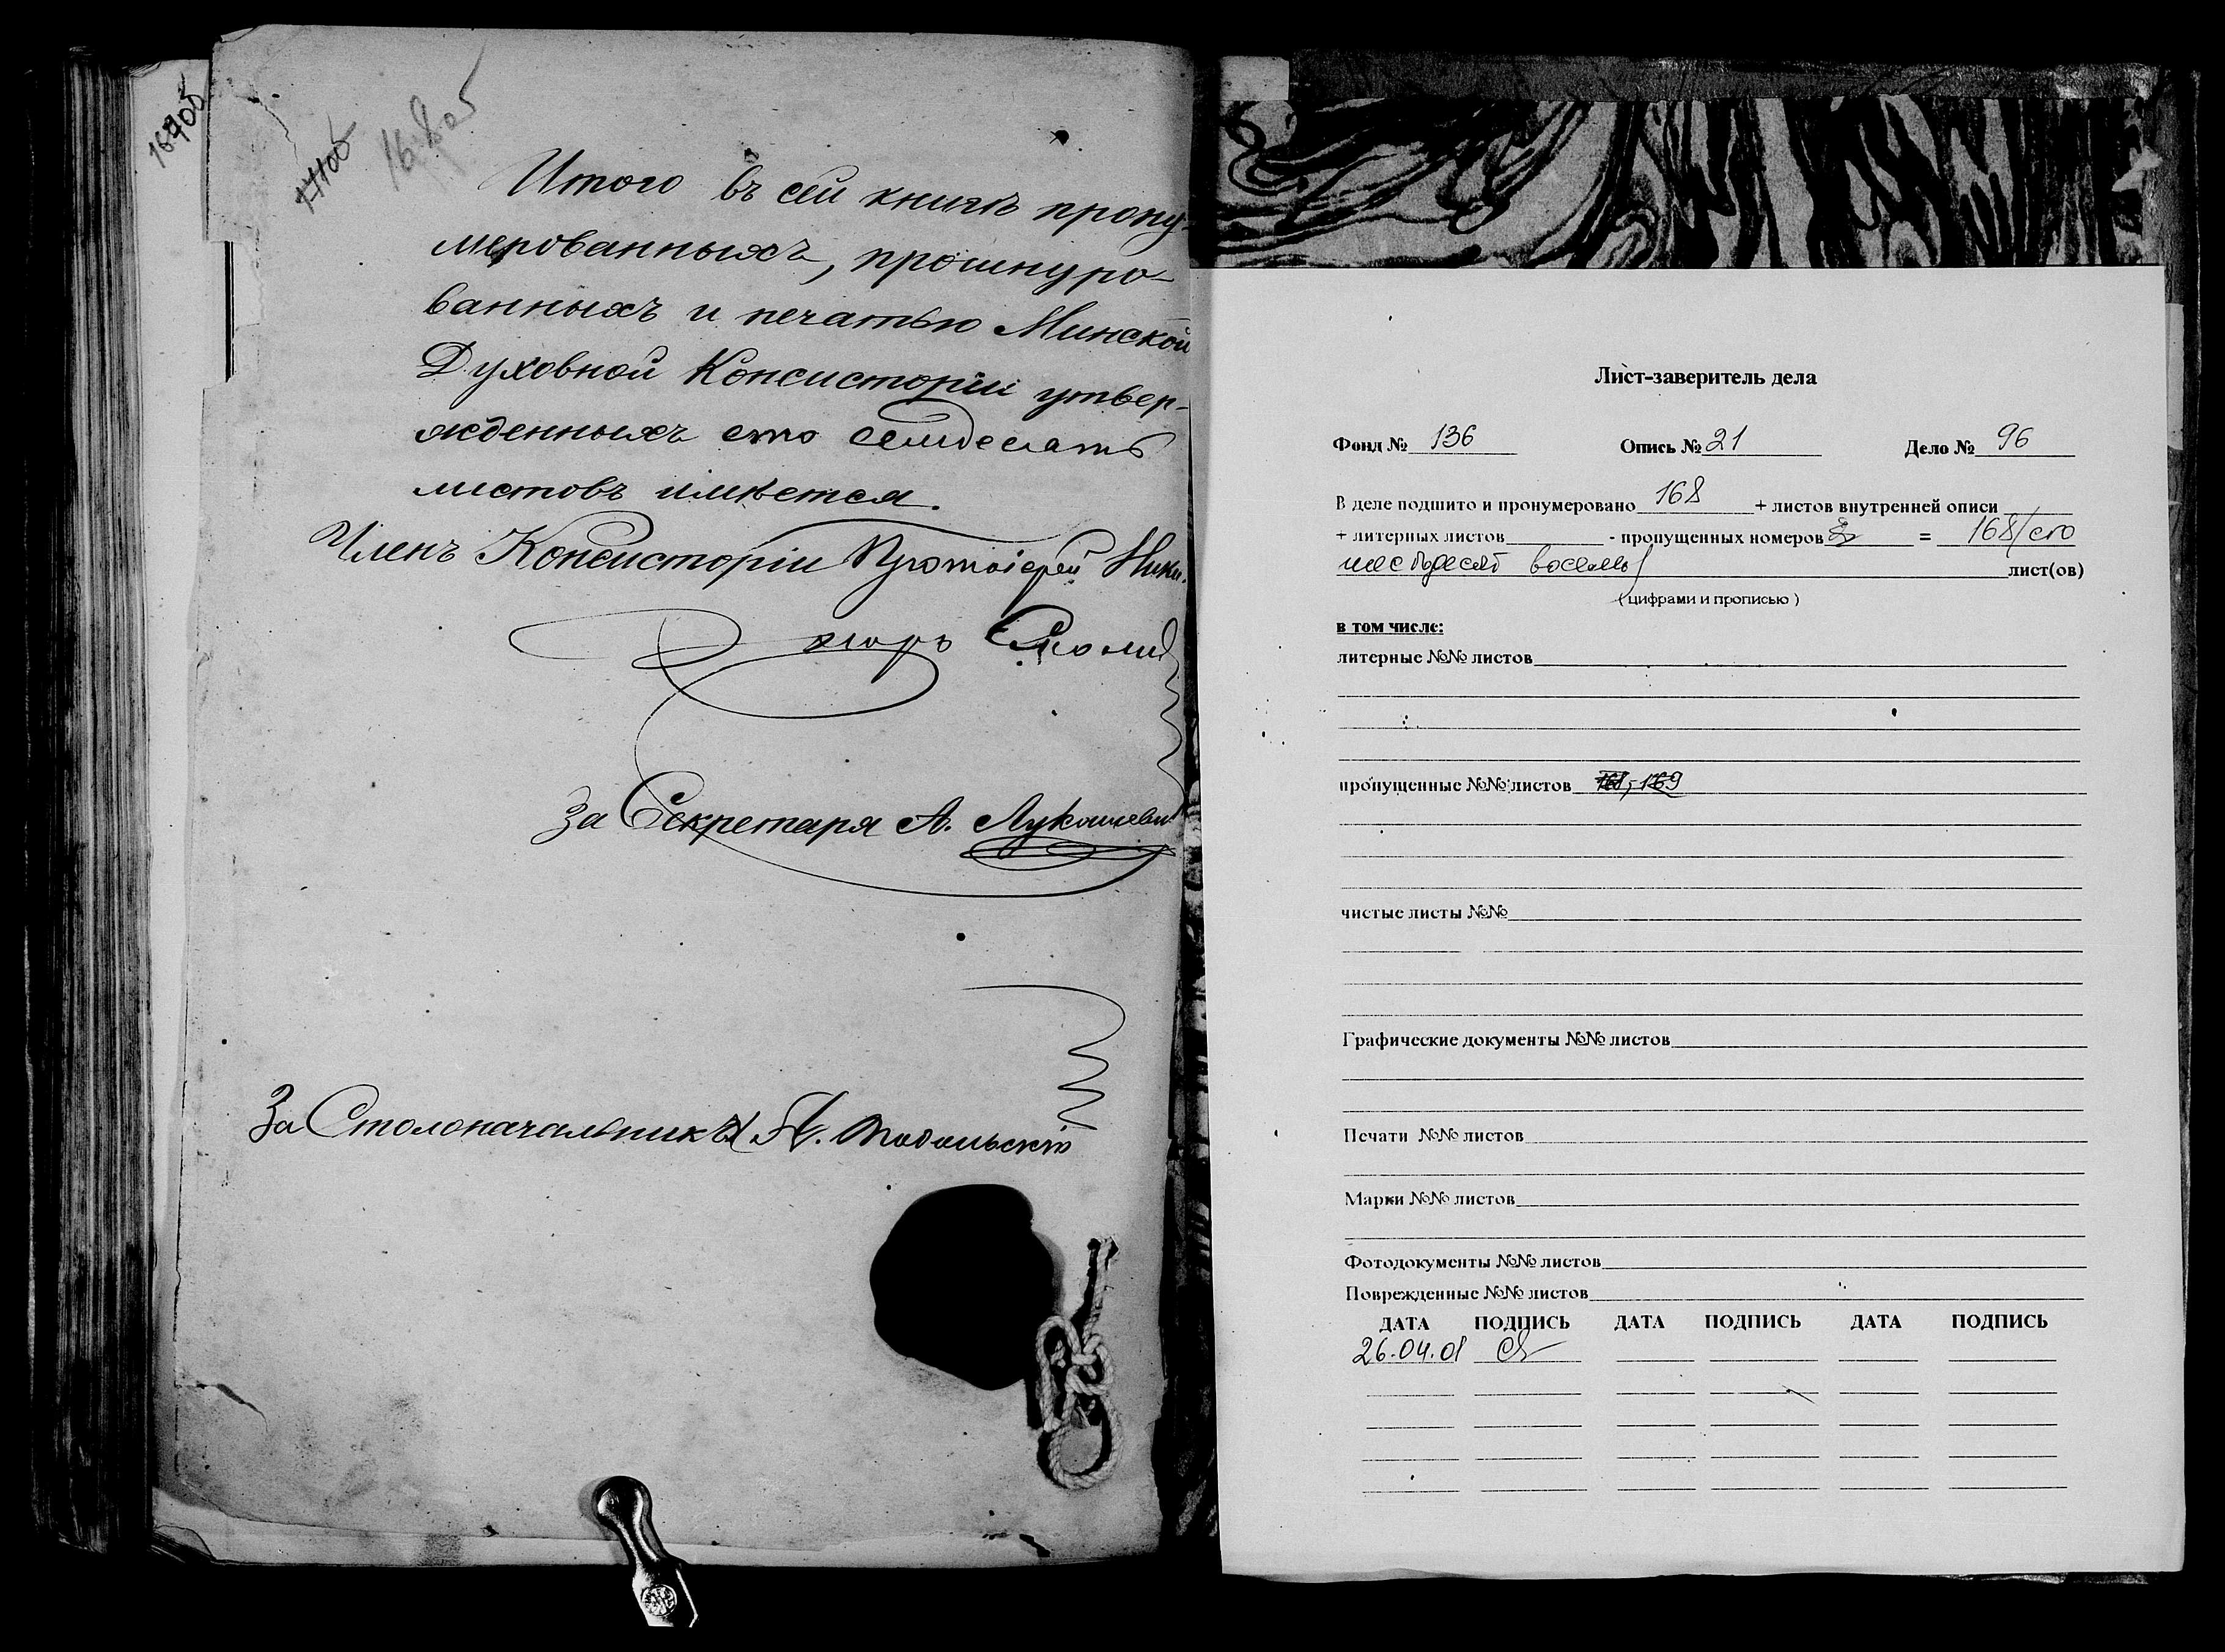 168об
Итого въ сей книгѣ прону-
мерованныхъ, прошнуро-
ванныхъ и печатью Минской
Духовной Консисторіи утвер-
жденныхъ сто семдесятъ
листовъ имѣется.
Членъ Консисторіи Протоіерей Ники-
За Секретаря А. Лукашеви
За Столоначальника А. Подольскій
Лист-заверитель дела
Фонд № 136 Опись № 21 Дело № 96
В деле подшито и пронумеровано 168 + листов внутренней описи
+ литерных листов - пропущенных номеров = 168/сто
шестьдесят восемь/ лист(ов)
( цифрами и прописью )
в том числе:
литерные №№ листов
пропущенные №№ листов 168, 169
чистые листы №№
Графические документы №№ листов
Печати №№ листов
Марки №№ листов
Фотодокументы №№ листов
Поврежденные №№ листов
ДАТА ПОДПИСЬ ДАТА ПОДПИСЬ ДАТА ПОДПИСЬ
26.04.01